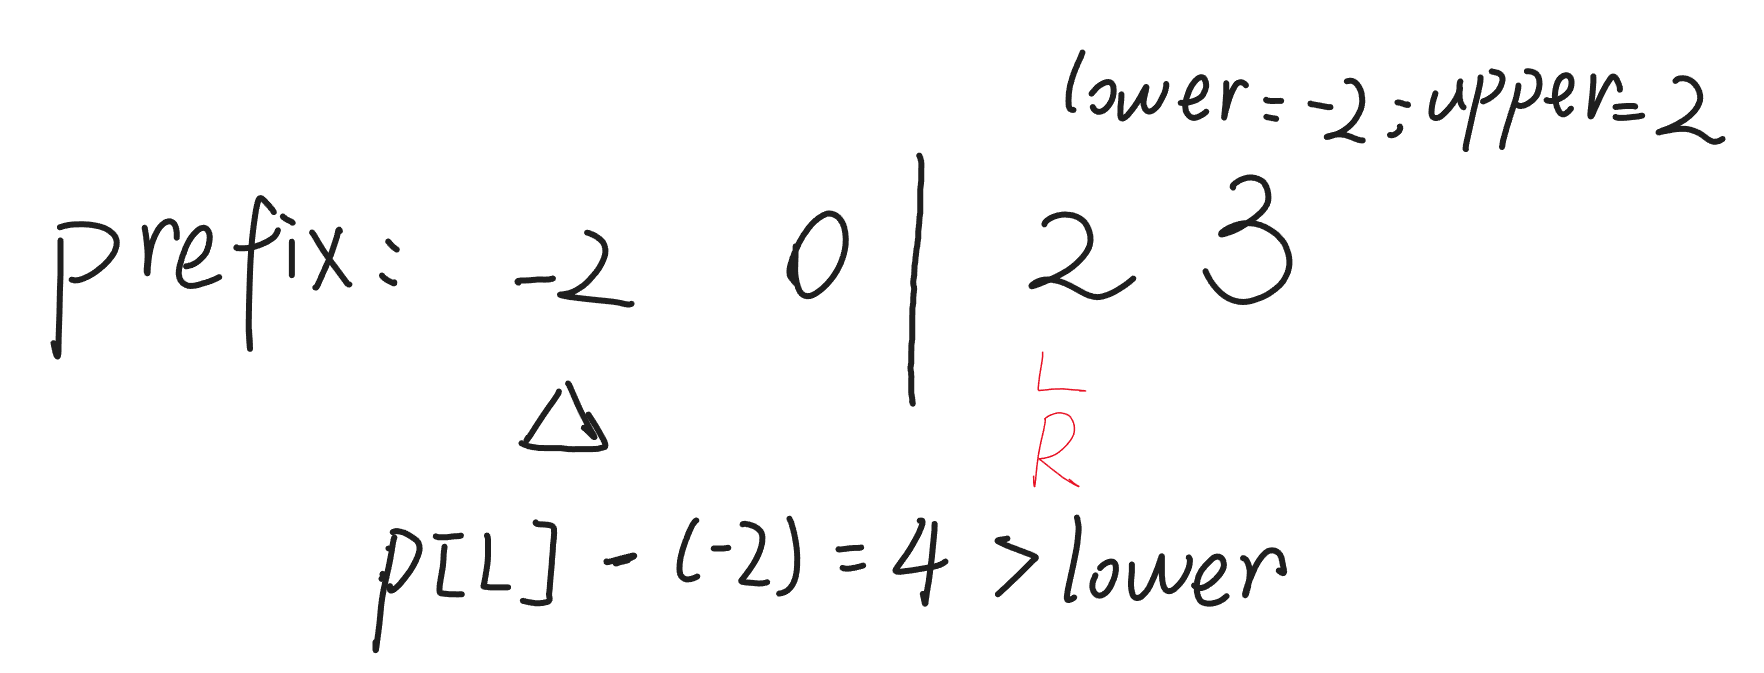 lower=-2;upper=2
prefix: -2 0 | 2 3
L
R
p[L] - (-2) = 4 > lower